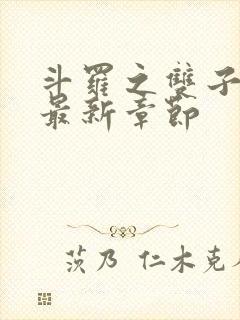 斗羅之雙子
最新章節
茨乃 仁木克